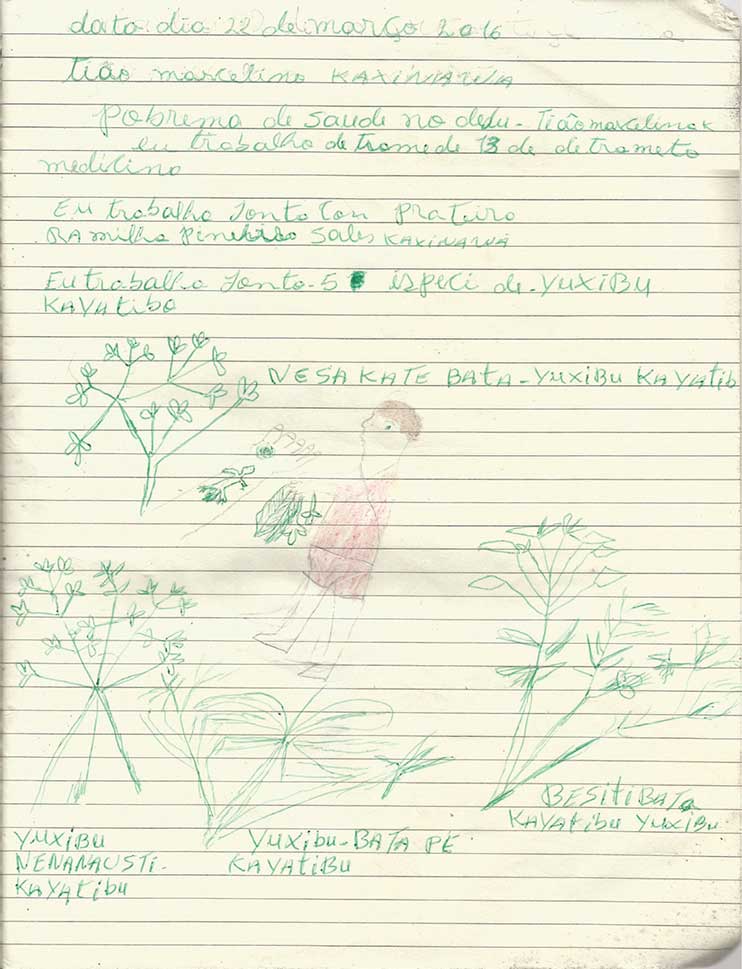 data dia 22 de março 2016
tião marcelino KAXINAWA
pobrema de saude no desu - Tiãomarcelino K
eu trabalho de tramede 13 de detrameto
medilino
Eu trabalho Jonto Con prateiro
RAmilho Pinehiro Sales KAXINAWA
Eu trabalho Jonto - 5 ispeci de - YUXIBU
KAYAtibo
NESAKATE BAtA - YUXIBU KAYATIB
BESITIBATA
KAYAtibu YUXIBU
YUXIBU
NENANAUSTI -
KAYAtibu
YUXIbu - BATA PE
KAYATIBU